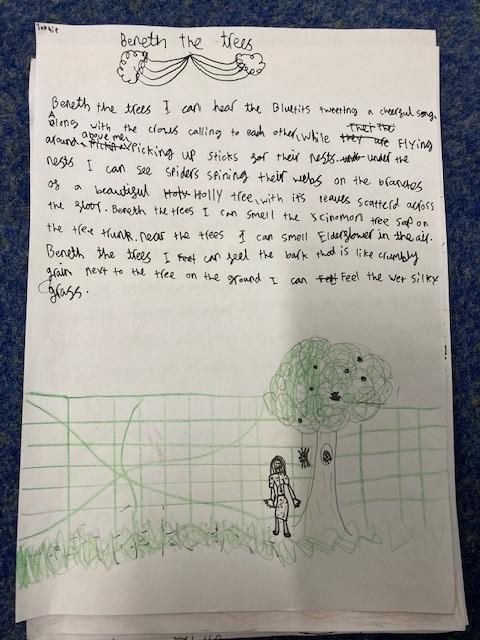 Sophie
Beneth the trees
Beneth the trees I can hear the Bluetits tweeting a cheerful song.
Along with the crows calling to each other, while they are Flying
around above me, Picking up sticks for their nests. under the
nests I can see spiders spining their webs on the branches
of a beautiful Holy Holly tree, with its leaves scatterd across
the floor. Beneth the trees I can smell the scinomon tree sap on
the tree trunk. near the trees I can smell Elderflower in the air.
Beneth the trees I Feel can feel the bark that is like crumbly
grain next to the tree on the ground I can Feel the wet silky
grass.